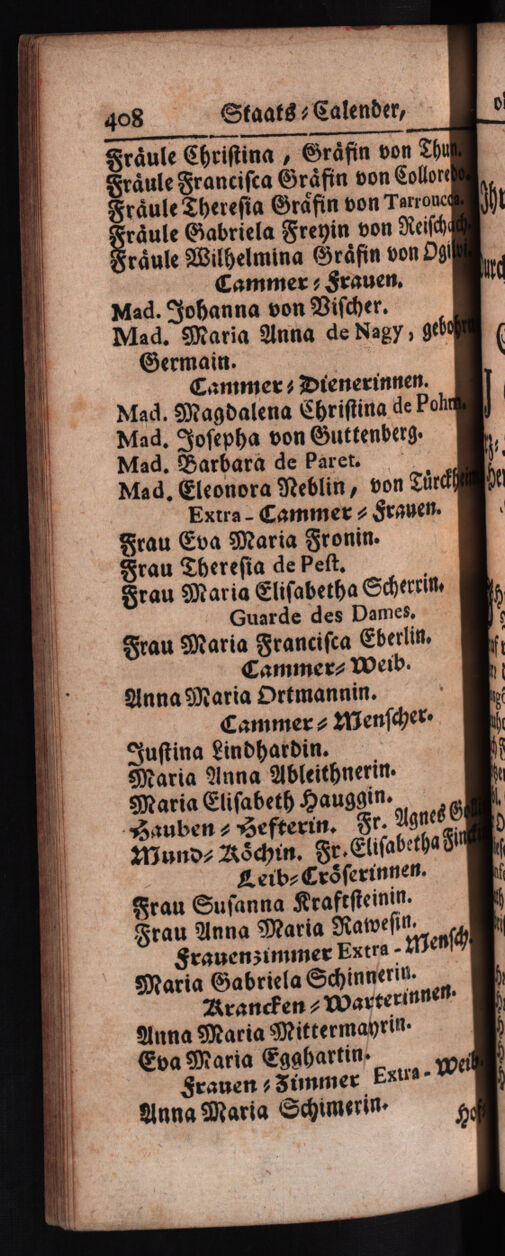 408 Staats-Calender,
Fräule Christina, Gräfin von Thun.
Fräule Francisca Gräfin von Colloredo.
Fräule Theresia Gräfin von Tarroucca.
Fräule Gabriela Freyin von Reischach.
Fräule Wilhelmina Gräfin von Ogilvi.
Cammer-Frauen.
Mad. Johanna von Vischer.
Mad. Maria Anna de Nagy, gebohrn
Germain.
Cammer-Dienerinnen.
Mad. Magdalena Christina de Pohm.
Mad. Josepha von Guttenberg.
Mad. Barbara de Paret.
Mad. Eleonora Neblin, von Türckheim
Extra-Cammer-Frauen.
Frau Eva Maria Fronin.
Frau Theresia de Pest.
Frau Maria Elisabetha Scherrin.
Guarde des Dames.
Frau Maria Francisca Eberlin.
Cammer-Weib.
Anna Maria Ortmannin.
Cammer-Menscher.
Justina Lindhardin.
Maria Anna Ableithnerin.
Maria Elisabeth Hauggin.
Hauben-Hefterin. Fr. Agnes
Mund-Köchin. Fr. Elisabetha
Leib-Cröserinnen.
Frau Susanna Kraftsteinin.
Frau Anna Maria Rawesin.
Frauenzimmer Extra-Mensch.
Maria Gabriela Schinnerin.
Krancken-Warterinnen.
Anna Maria Mittermayrin.
Eva Maria Egghartin.
Frauen-Zimmer Extra-Weib.
Anna Maria Schimerin.
Hof-